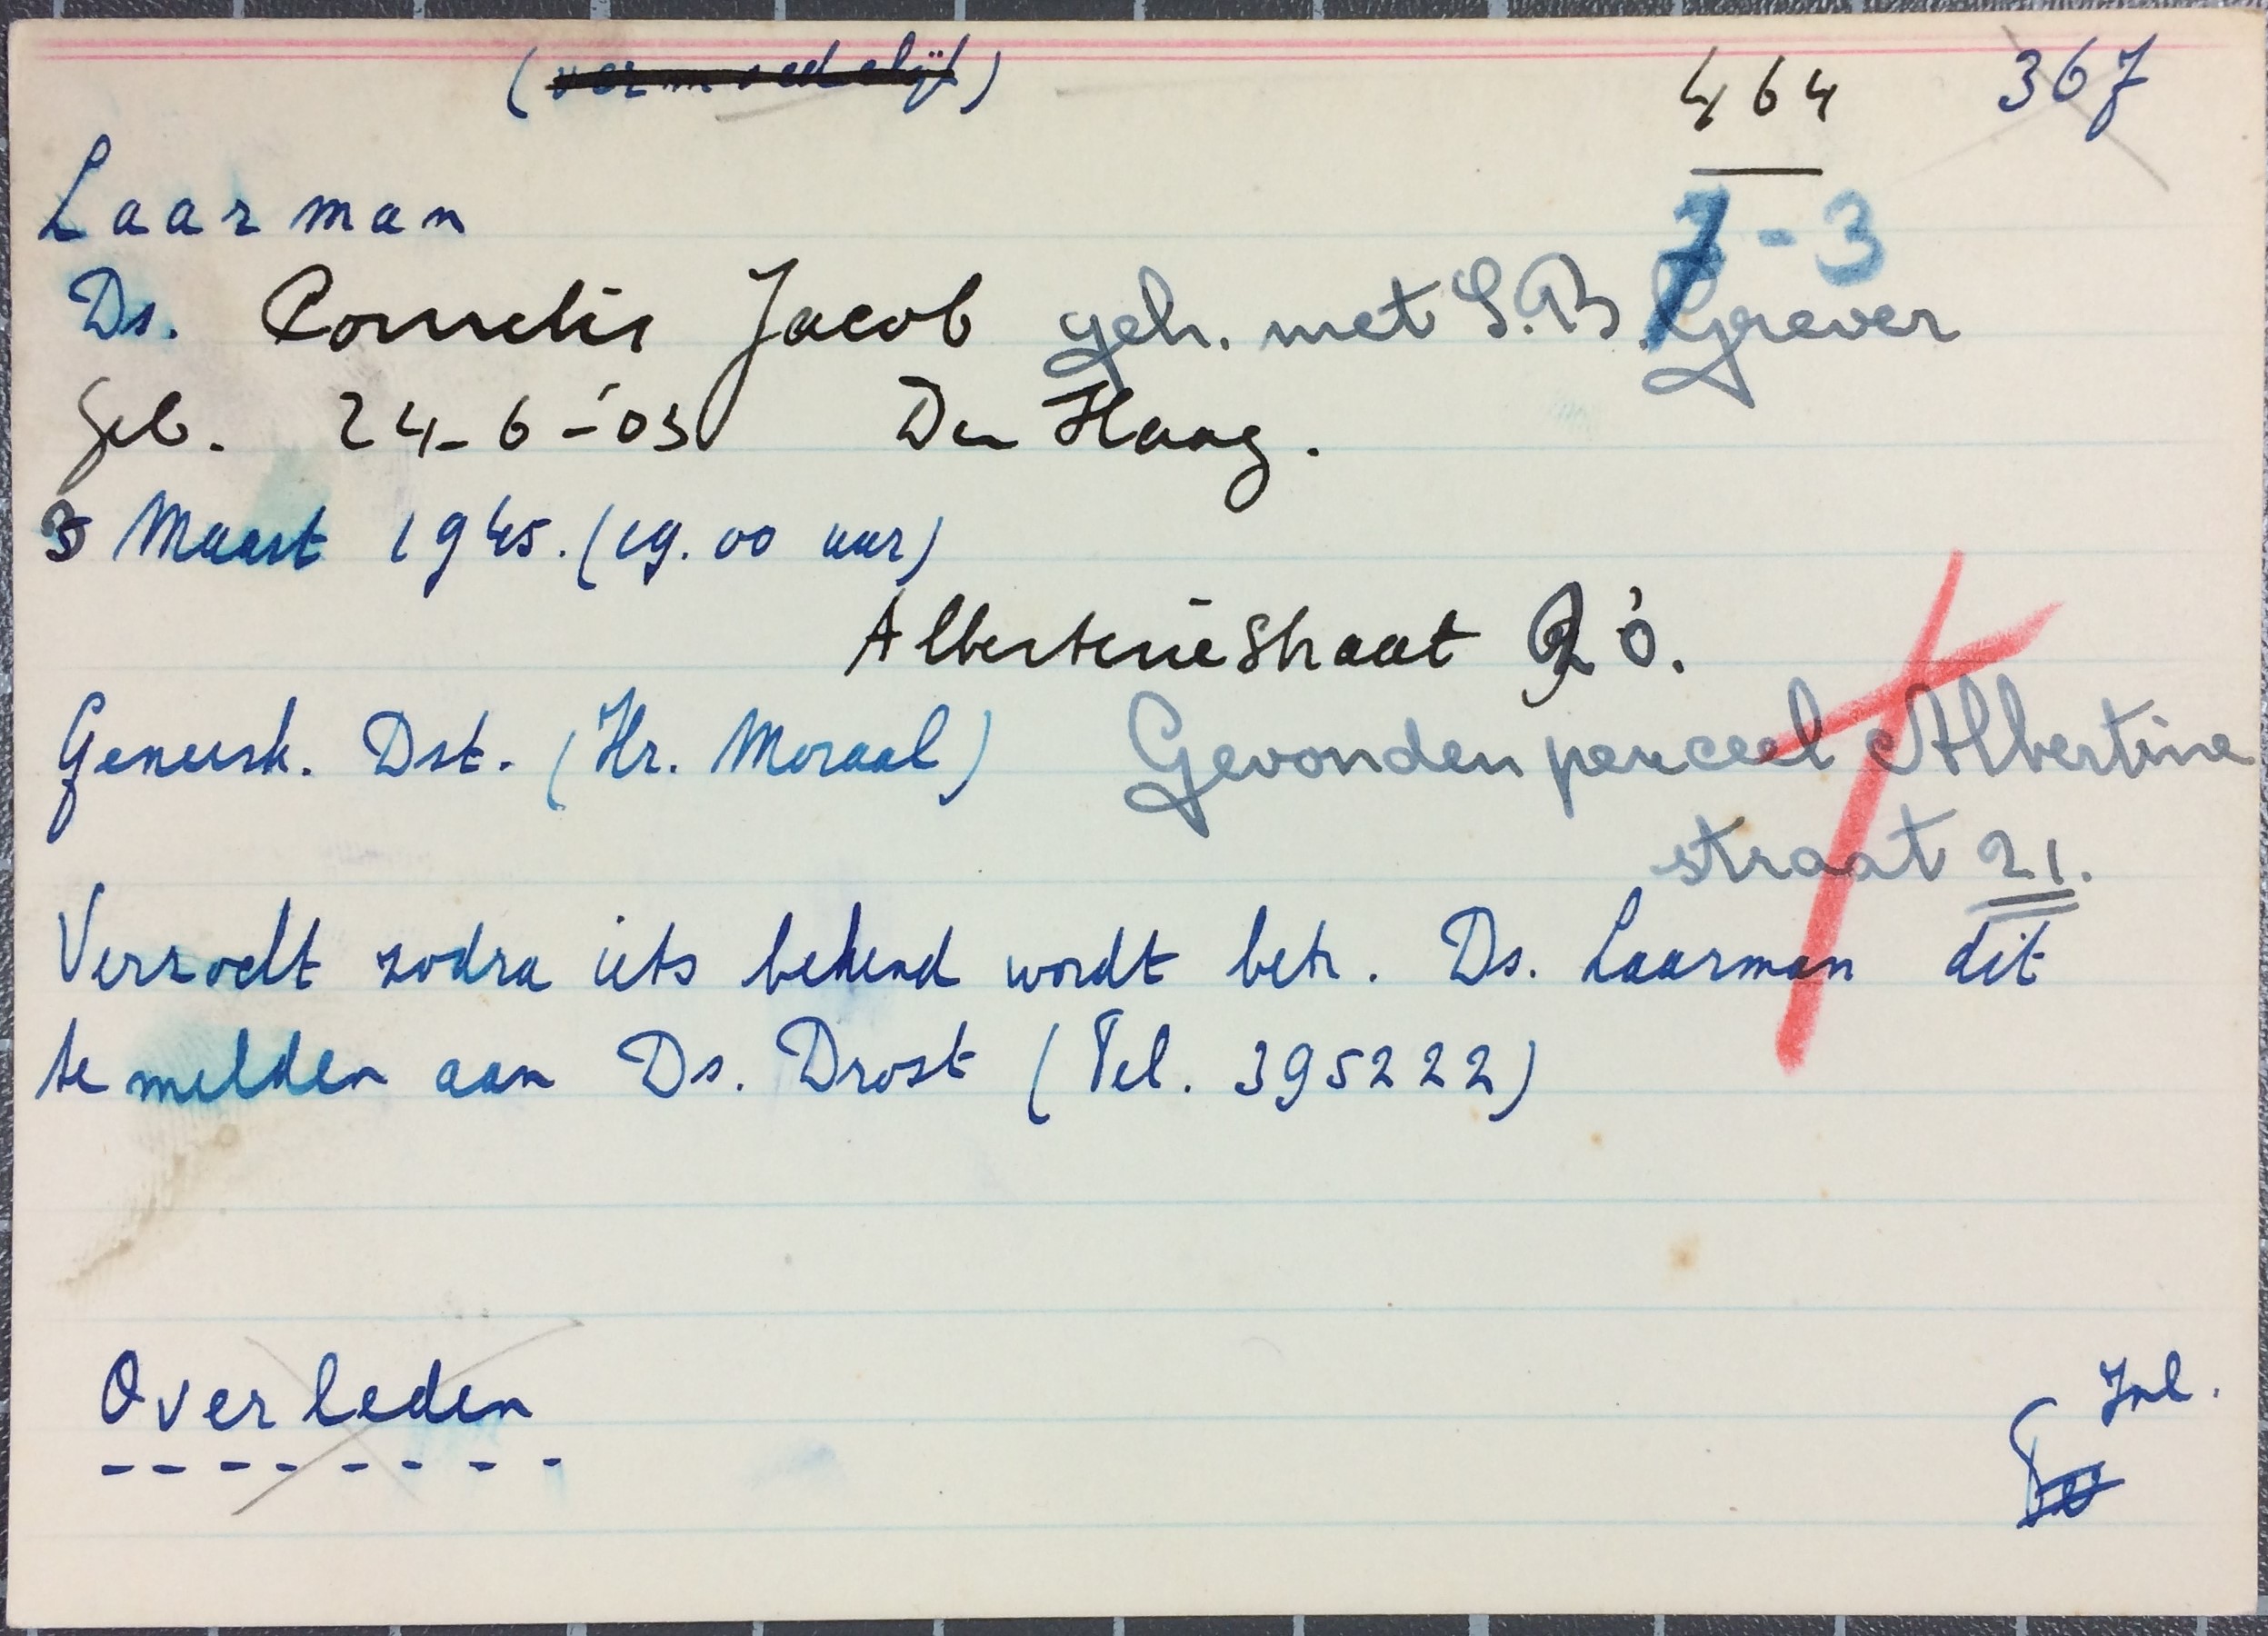 (vermoedelijk) 464 367
Laarman 7-3
Ds. Cornelis Jacob geh. met S.B. Grever
Geb. 24-6-'03 Den Haag.
3 Maart 1945. (19.00 uur)
Albertinestraat 20.
Geneesk. Dst. (Hr. Moraal) Gevonden perceel Albertine
straat 21.
Verzoekt zodra iets bekend wordt betr. Ds. Laarman dit
te melden aan Ds. Drost (Tel. 395222)
Overleden
Inl.